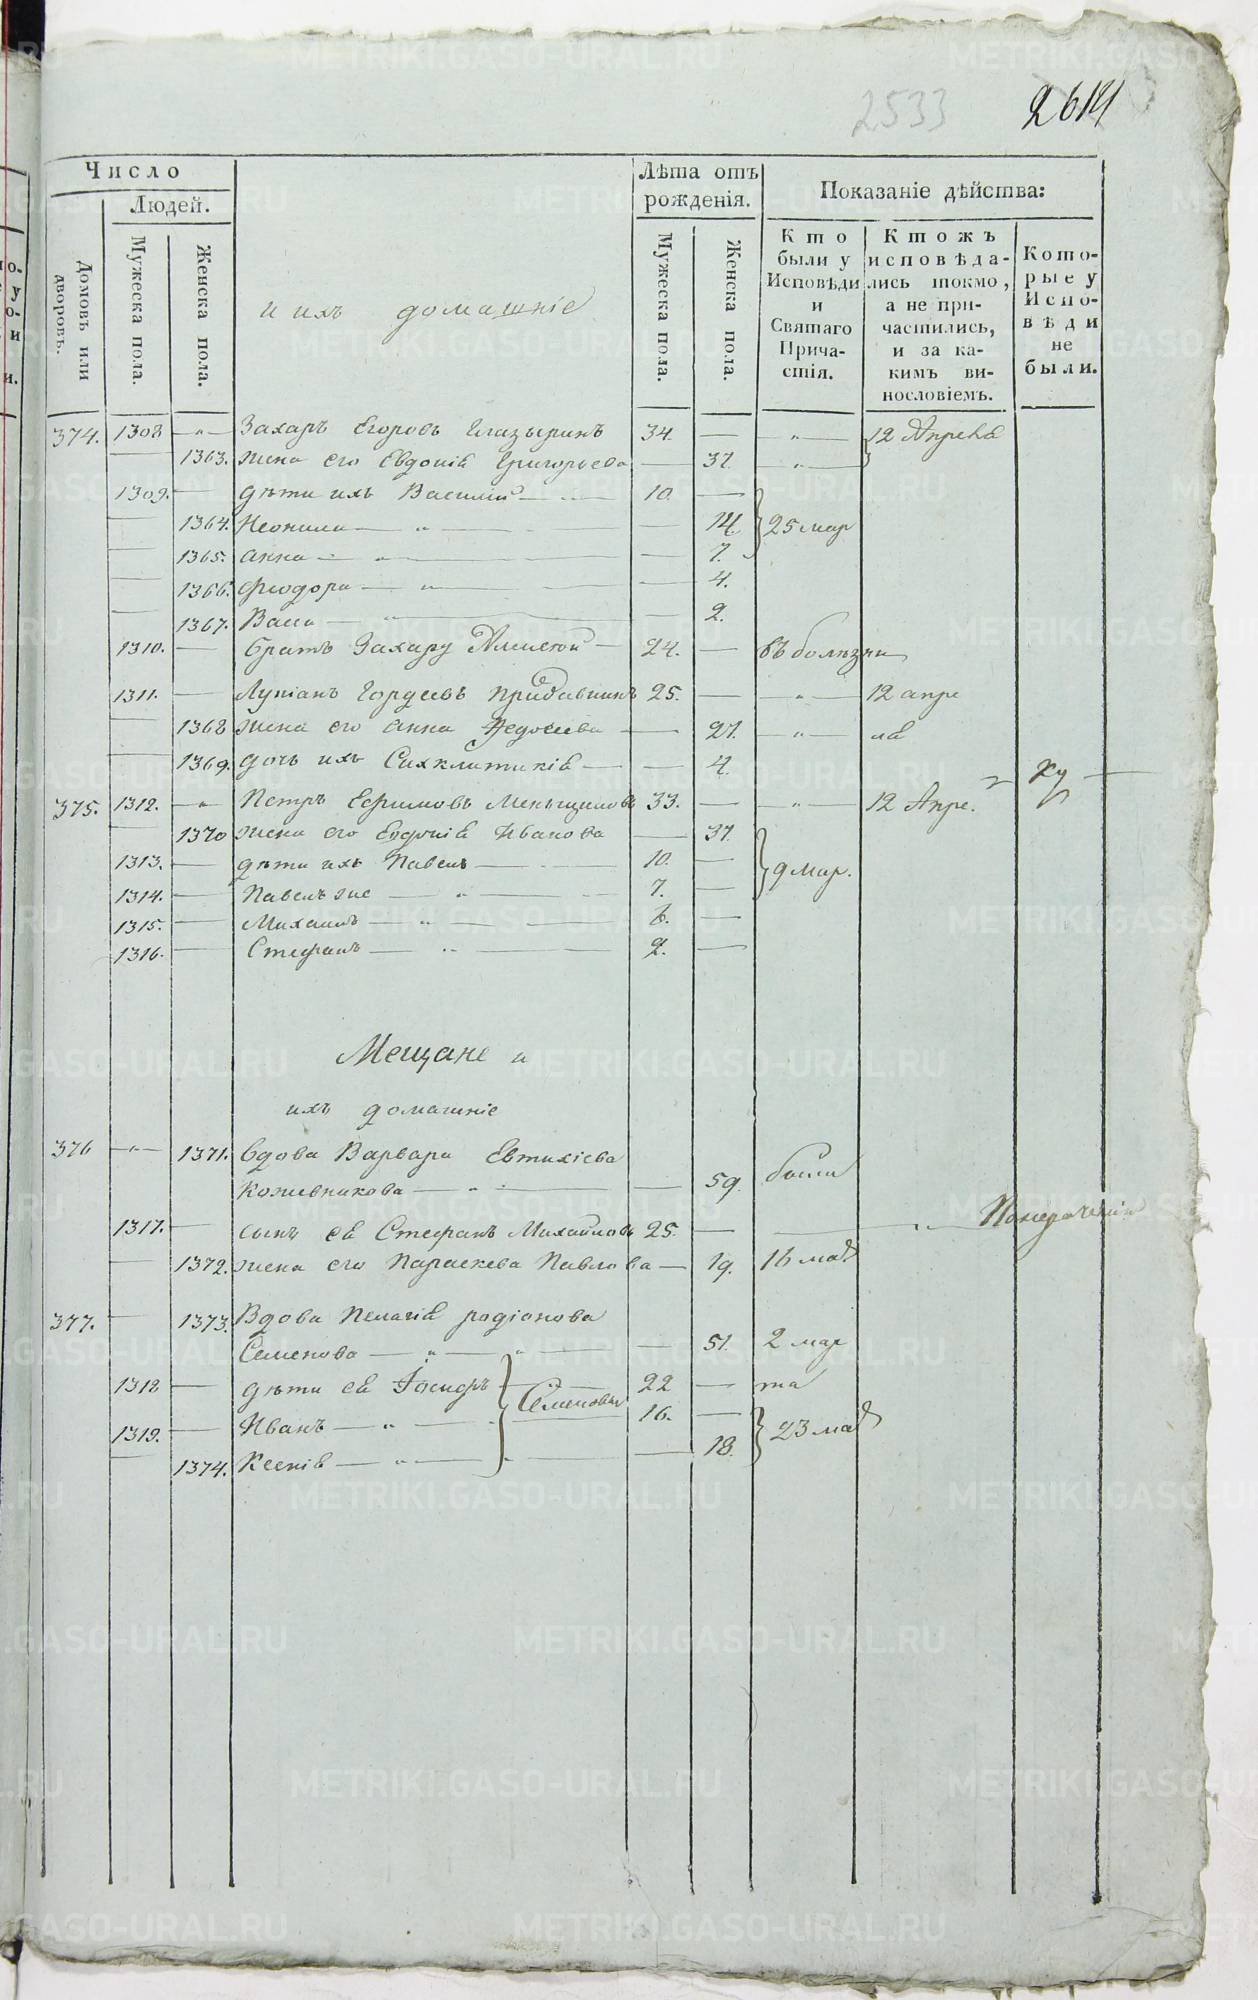 2533
2614
Число
Людей.
Домовъ или дворовъ.
Мужеска пола.
Женска пола.
и ихъ домашніе
Лѣта отъ рожденія.
Мужеска пола.
Женска пола.
Показаніе дѣйства:
Кто были у Исповѣди и Святаго Причастія.
Ктожъ исповѣдались токмо, а не причастились, и за какимъ винословіемъ.
Которые у Исповѣди не были.
374. 1308 — „ — Захаръ Егоровъ Глазыринъ 34. — — „ — 12 Апрелѣ
— 1363. жена его Евдокія Григорьева — 37. — „ —
1309. — дѣти ихъ Василій — 10. —
— 1364. Неонила — „ — — 14. 25 мар
— 1365. Анна — „ — — 7.
— 1366. Феодора — „ — — 4.
— 1367. Васса — „ — — 2.
1310. — братъ Захару Алексей — 24. — въ болѣзни
1311. — Лупіанъ Гордеевъ 25. — — „ — 12 апре
— 1368 жена его Анна Федосеева — 27. — „ — ля
— 1369. дочь ихъ Синклитикія — — 4.
375. 1312. — „ Петръ Ефимовъ Меньщиковъ 33. — — „ — 12 Апре.
— 1370 жена его Евдокія Иванова — 37.
1313. — дѣти ихъ Павелъ — 10. — 9 мар.
1314. — Павелъ же — „ — 7. —
1315. — Михаилъ — „ — 6. —
1316. — Стефанъ — „ — 2. —
Мещане и
ихъ домашніе
376 — „ — 1371. Вдова Варвара Евтихіева
Кожевникова — „ — — 59. были
1317. — сынъ ея Стефанъ Михайловъ 25. — — „ —
— 1372. жена его Параскева Павлова — 19. 16 мая
377. — 1373. Вдова Пелагія родіонова
Семенова — „ — „ — — 51. 2 мар
1318 — дѣти ея Іосифъ Семеновы 22 — та
1319. — Иванъ — „ — 16. — 23 мая
— 1374. Ксенія — „ — — 18.